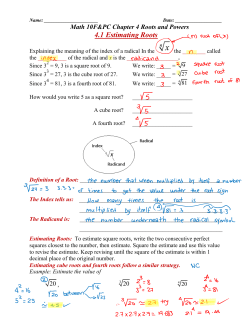 Name: Date:
Math 10F&PC Chapter 4 Roots and Powers
4.1 Estimating Roots
Explaining the meaning of the index of a radical In the ⁿ√x the n called
the index of the radical and x is the radicand.
Since 3² = 9, 3 is a square root of 9. We write: 3 = ²√9 square root
Since 3³ = 27, 3 is the cube root of 27. We write: 3 = ³√27 cube root
Since 3⁴ = 81, 3 is a fourth root of 81. We write: 3 = ⁴√81 fourth root of 81
How would you write 5 as a square root? √5
A cube root? ³√5
A fourth root? ⁴√5
Radical
Index
ⁿ√x
Radicand
Definition of a Root: the number that when multiplied by itself a number
of times to get the value under the root sign
The Index tells us: How many times the root is
multiplied by itself ⁴√81 = 3
The Radicand is: the number underneath the radical symbol
Estimating Roots: To estimate square roots, write the two consecutive perfect
squares closest to the number, then estimate. Square the estimate and use this value
to revise the estimate. Keep revising until the square of the estimate is within 1
decimal place of the original number.
Estimating cube roots and fourth roots follow a similar strategy. NC
Example: Estimate the value of
√20, ³√20, ⁴√20
4² = 16
5² = 25
20 between
2³ = 8
3³ = 27
2⁴ = 16
3⁴ = 81
³√20 ≈ 2.7